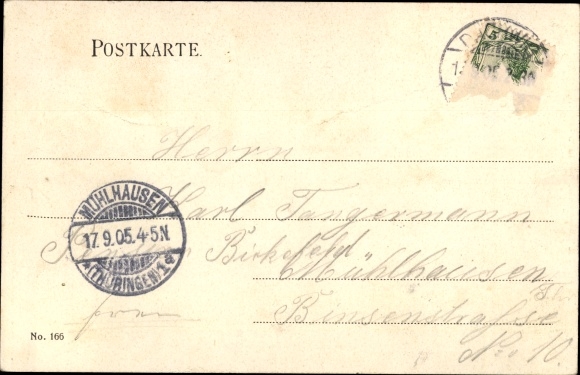 POSTKARTE.
5
Herrn
Karl Tangermann
MÜHLHAUSEN
17.9.05.4-5N.
*(THÜRINGEN)1*
Birkefeld
Mühlhausen
Binsenstrasse
No. 10.
No. 166